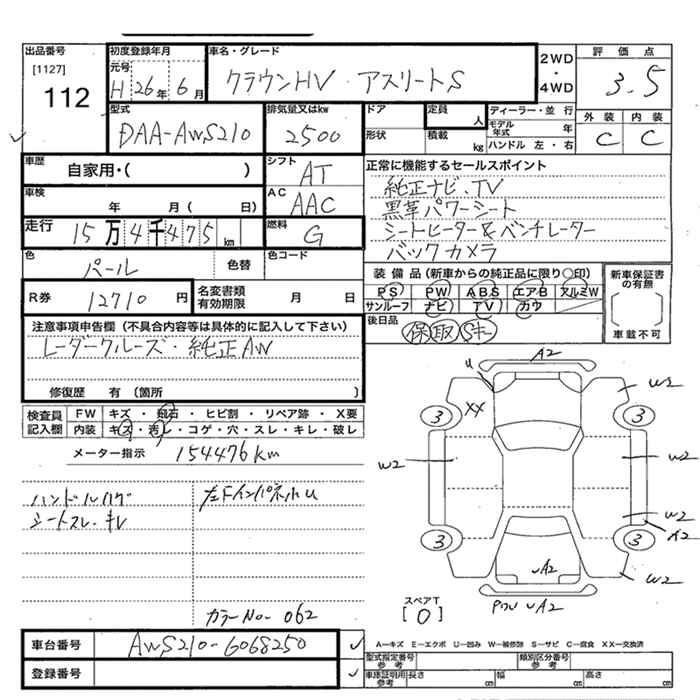 出品番号
[1127]
112
初度登録年月
元号
H 26年 6月
車名・グレード
クラウンHV・アスリートS
2WD
・
4WD
評価点
3.5
型式
DAA-AWS210
排気量又はkw
2500
ドア
形状
定員
人
積載
kg
ディーラー・並行
モデル年式
年
ハンドル 左・右
外装 内装
C C
車歴
自家用・( )
シフト
AT
車検
年 月( 日)
AC
AAC
走行
15万4千475km
燃料
G
正常に機能するセールスポイント
純正ナビ、TV
黒革パワーシート
シートヒーター&ベンチレーター
バックカメラ
色
パール
色替
色コード
R券
12710円
名変書類
有効期限
月 日
装備品(新車からの純正品に限り○印)
PS PW ABS エアB アルミW
サンルーフ ナビ TV カワ
新車保証書
の有無
[ ]
車載不可
後日品
保 取 S キ
注意事項申告欄(不具合内容等は具体的に記入して下さい)
レーダークルーズ・純正AW
修復歴 有(箇所 )
検査員
記入欄
FW キズ・飛石・ヒビ割・リペア跡・X要
内装 キズ・汚レ・コゲ・穴・スレ・キレ・破レ
メーター指示 154476km
ハンドルハゲ
シートスレ・キレ
左Fインパネ小U
カラーNo- 062
A2
U
XX
W2
3
3
W2
W2
W2
A2
3
3
UA2
W2
UA2
スペアT
[0]
A−キズ E−エクボ U−凹み W−補修跡 S−サビ C−腐食 XX−交換済
車台番号
AWS210-6068250
登録番号
型式指定番号
参考
類別区分番号
参考
車庫証明用
参考
長さ
cm
幅
cm
高さ
cm